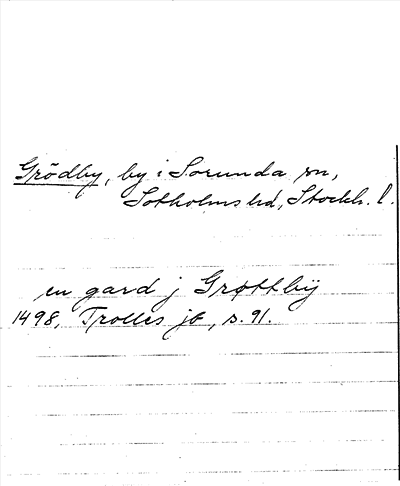 Grödby, by i Sorunda sn,
Sotholms hd, Stockh. l.
en gard j Grøttby
1498, Trolles jb, s. 91.